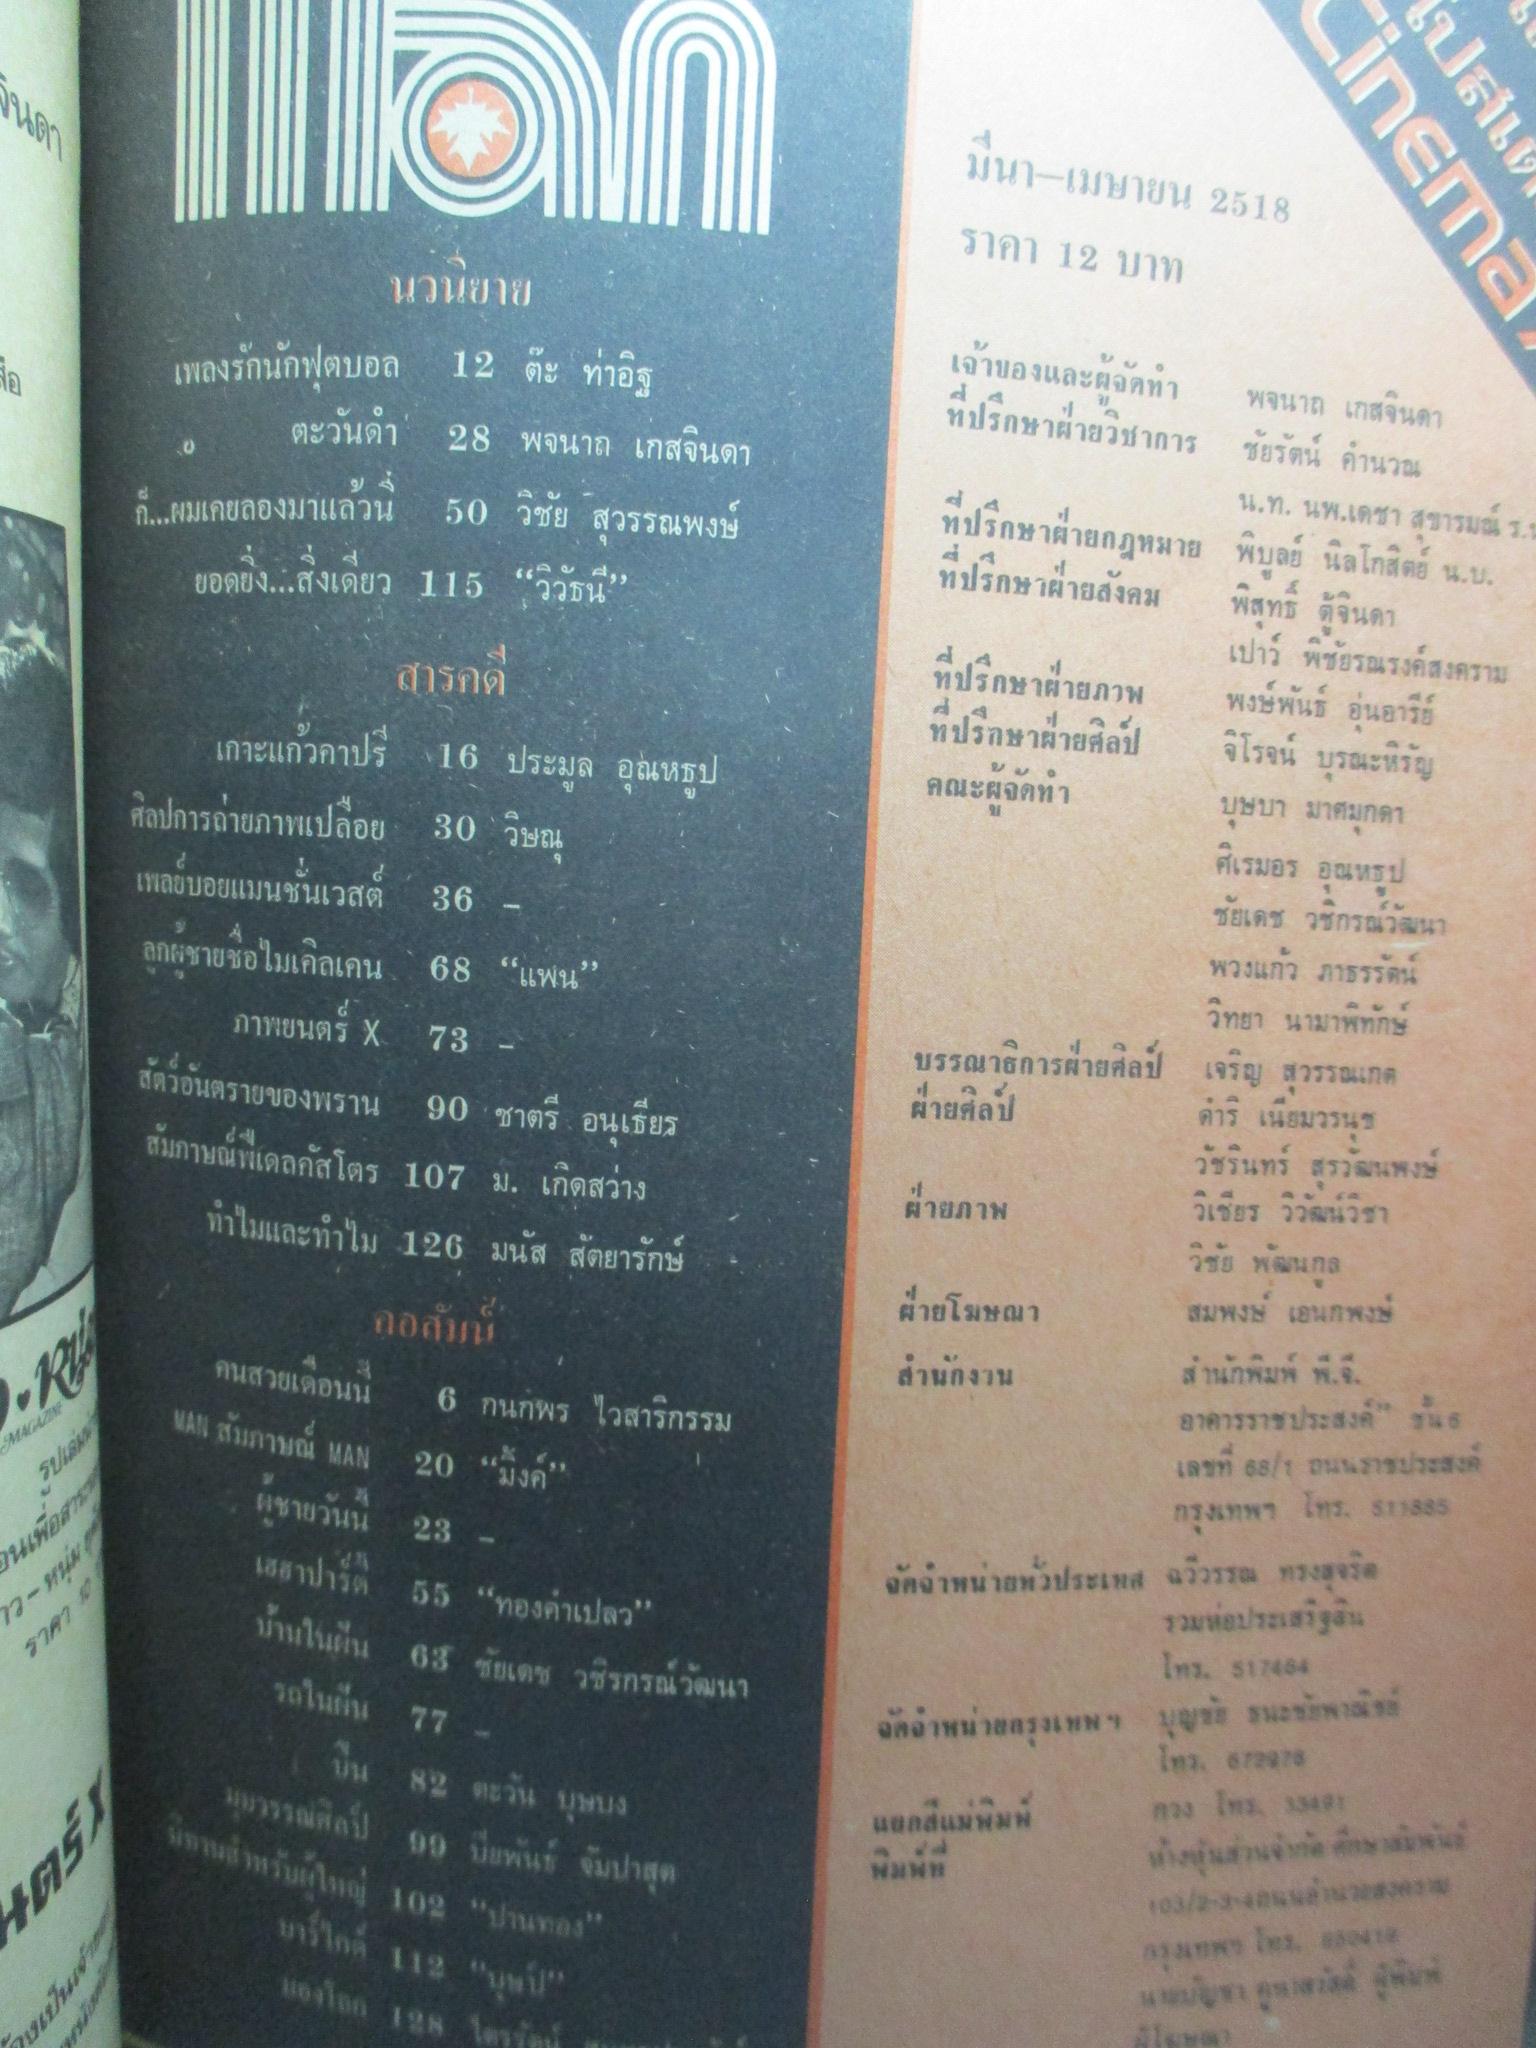 แมน
นวนิยาย
เพลงรักนักฟุตบอล 12 ต๊ะ ท่าอิฐ
ตะวันดำ 28 พจนาถ เกสจินดา
ก็...ผมเคยลองมาแล้วนี่ 50 วิชัย สุวรรณพงษ์
ยอดยิ่ง...สิ่งเดียว 115 “วิวัธนี”
สารคดี
เกาะแก้วคาปรี 16 ประมูล อุณหธูป
ศิลปการถ่ายภาพเปลือย 30 วิษณุ
เพลย์บอยแมนชั่นเวสต์ 36 –
ลูกผู้ชายชื่อไมเคิลเคน 68 “แพน”
ภาพยนตร์ X 73 –
สัตว์อันตรายของพราน 90 ชาตรี อนุเธียร
สัมภาษณ์ฟิเดลคัสโตร 107 ม. เกิดสว่าง
ทำไมและทำไม 126 มนัส สัตยารักษ์
คอลัมน์
คนสวยเดือนนี้ 6 กนกพร ไวสาริกรรม
MAN สัมภาษณ์ MAN 20 “มิ้งค์”
ผู้ชายวันนี้ 23 –
เฮฮาปาร์ตี้ 55 “ทองคำเปลว”
บ้านในฝัน 63 ชัยเดช วชิรกรณ์วัฒนา
รถในฝัน 77 –
ปืน 82 ตะวัน บุษบง
มุขวรรณศิลป์ 99 ปิยพันธ์ จัมปาสุต
นิทานสำหรับผู้ใหญ่ 102 “ปานทอง”
บาร์ไกด์ 112 “บุษป์”
มองโลก 128
Cinema
มีนา—เมษายน 2518
ราคา 12 บาท
เจ้าของและผู้จัดทำ พจนาถ เกสจินดา
ที่ปรึกษาฝ่ายวิชาการ ชัยรัตน์ คำนวณ
น.ท. นพ.เดชา สุขารมณ์
ที่ปรึกษาฝ่ายกฎหมาย พิบูลย์ นิลโกสิตย์ น.บ.
ที่ปรึกษาฝ่ายสังคม พิสุทธิ์ ตู้จินดา
เปาว์ พิชัยรณรงค์สงคราม
ที่ปรึกษาฝ่ายภาพ พงษ์พันธ์ อุ่นอารีย์
ที่ปรึกษาฝ่ายศิลป์ จิโรจน์ บุรณะหิรัญ
คณะผู้จัดทำ บุษบา มาศมุกดา
ศิเรมอร อุณหธูป
ชัยเดช วชิกรณ์วัฒนา
พวงแก้ว ภาธรรัตน์
วิทยา นามาพิทักษ์
บรรณาธิการฝ่ายศิลป์ เจริญ สุวรรณเกต
ฝ่ายศิลป์ ดำริ เนียมวรนุช
วัชรินทร์ สุรวัฒนพงษ์
ฝ่ายภาพ วิเชียร วิวัฒน์วิชา
วิชัย พัฒนกูล
ฝ่ายโฆษณา สมพงษ์ เอนกพงษ์
สำนักงาน สำนักพิมพ์ พี.จี.
อาคารราชประสงค์ ชั้น 6
เลขที่ 68/1 ถนนราชประสงค์
กรุงเทพฯ โทร. 511885
จัดจำหน่ายทั่วประเทศ ฉวีวรรณ ทรงสุจริต
รวมห่อประเสริฐสิน
โทร. 517464
จัดจำหน่ายกรุงเทพฯ บุญชัย ธนะชัยพาณิชย์
โทร.
แยกสีแม่พิมพ์ โทร. 33491
พิมพ์ที่ ห้างหุ้นส่วนจำกัด
กรุงเทพฯ โทร.
ผู้พิมพ์
ผู้โฆษณา
จินดา
MAGAZINE
ราคา 10